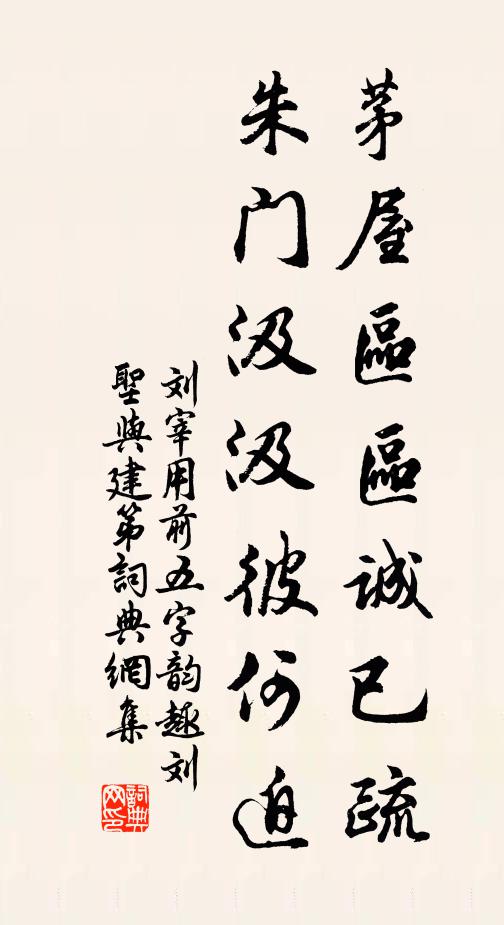 茅屋區區誠已疏
朱门汲汲彼何迫
刘宰用前五字韵趣刘
聖與建第詞典網集
詞典网印